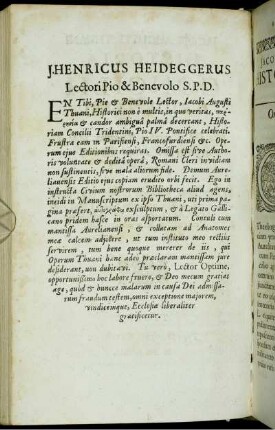 J. HENRICUS HEIDEGGERUS
Lectori Pio & Benevolo S. P. D.
EN Tibi, Pie & Benevole Lector, Jacobi Augusti
Thuani, Historici non è multis, in quo veritas,
& candor ambiguâ palmâ decertant, Histo-
riam Concilii Tridentini, Pio IV. Pontifice celebrati.
Frustra eam in Parisiensi, Francofurdiensi &c. Ope-
rum ejus Editionibus requires. Omissa est sive Autho-
ris voluntate & deditâ operâ, Romani Cleri invidiam
non sustinentis, sive mala aliorum fide. Demum Aure-
lianensis Editio ejus copiam erudito orbi fecit. Ego in
instructa Civium nostrorum Bibliotheca aliud agens,
incidi in Manuscriptum ex ipso Thuani, uti prima pa-
gina præfert, exscriptum, & à Legato Galli-
cano pridem hasce in oras asportatum. Contuli cum
mantissa Aurelianensi, & collatam ad Anatomes
meæ calcem adjicere, ut tum instituto meo rectius
servirem, tum bene quoque mererer de iis, qui
Operum Thuani hanc adeò præclaram mantissam jure
desiderant, non dubitavi. Tu verò, Lector Optime,
opportunissimo hoc labore fruere, & Deo mecum gratias
age, quòd & huncce malarum in causa Dei admissa-
rum fraudum testem, omni exceptione majorem,
vindicemque, Ecclesiæ liberaliter
gratificetur.